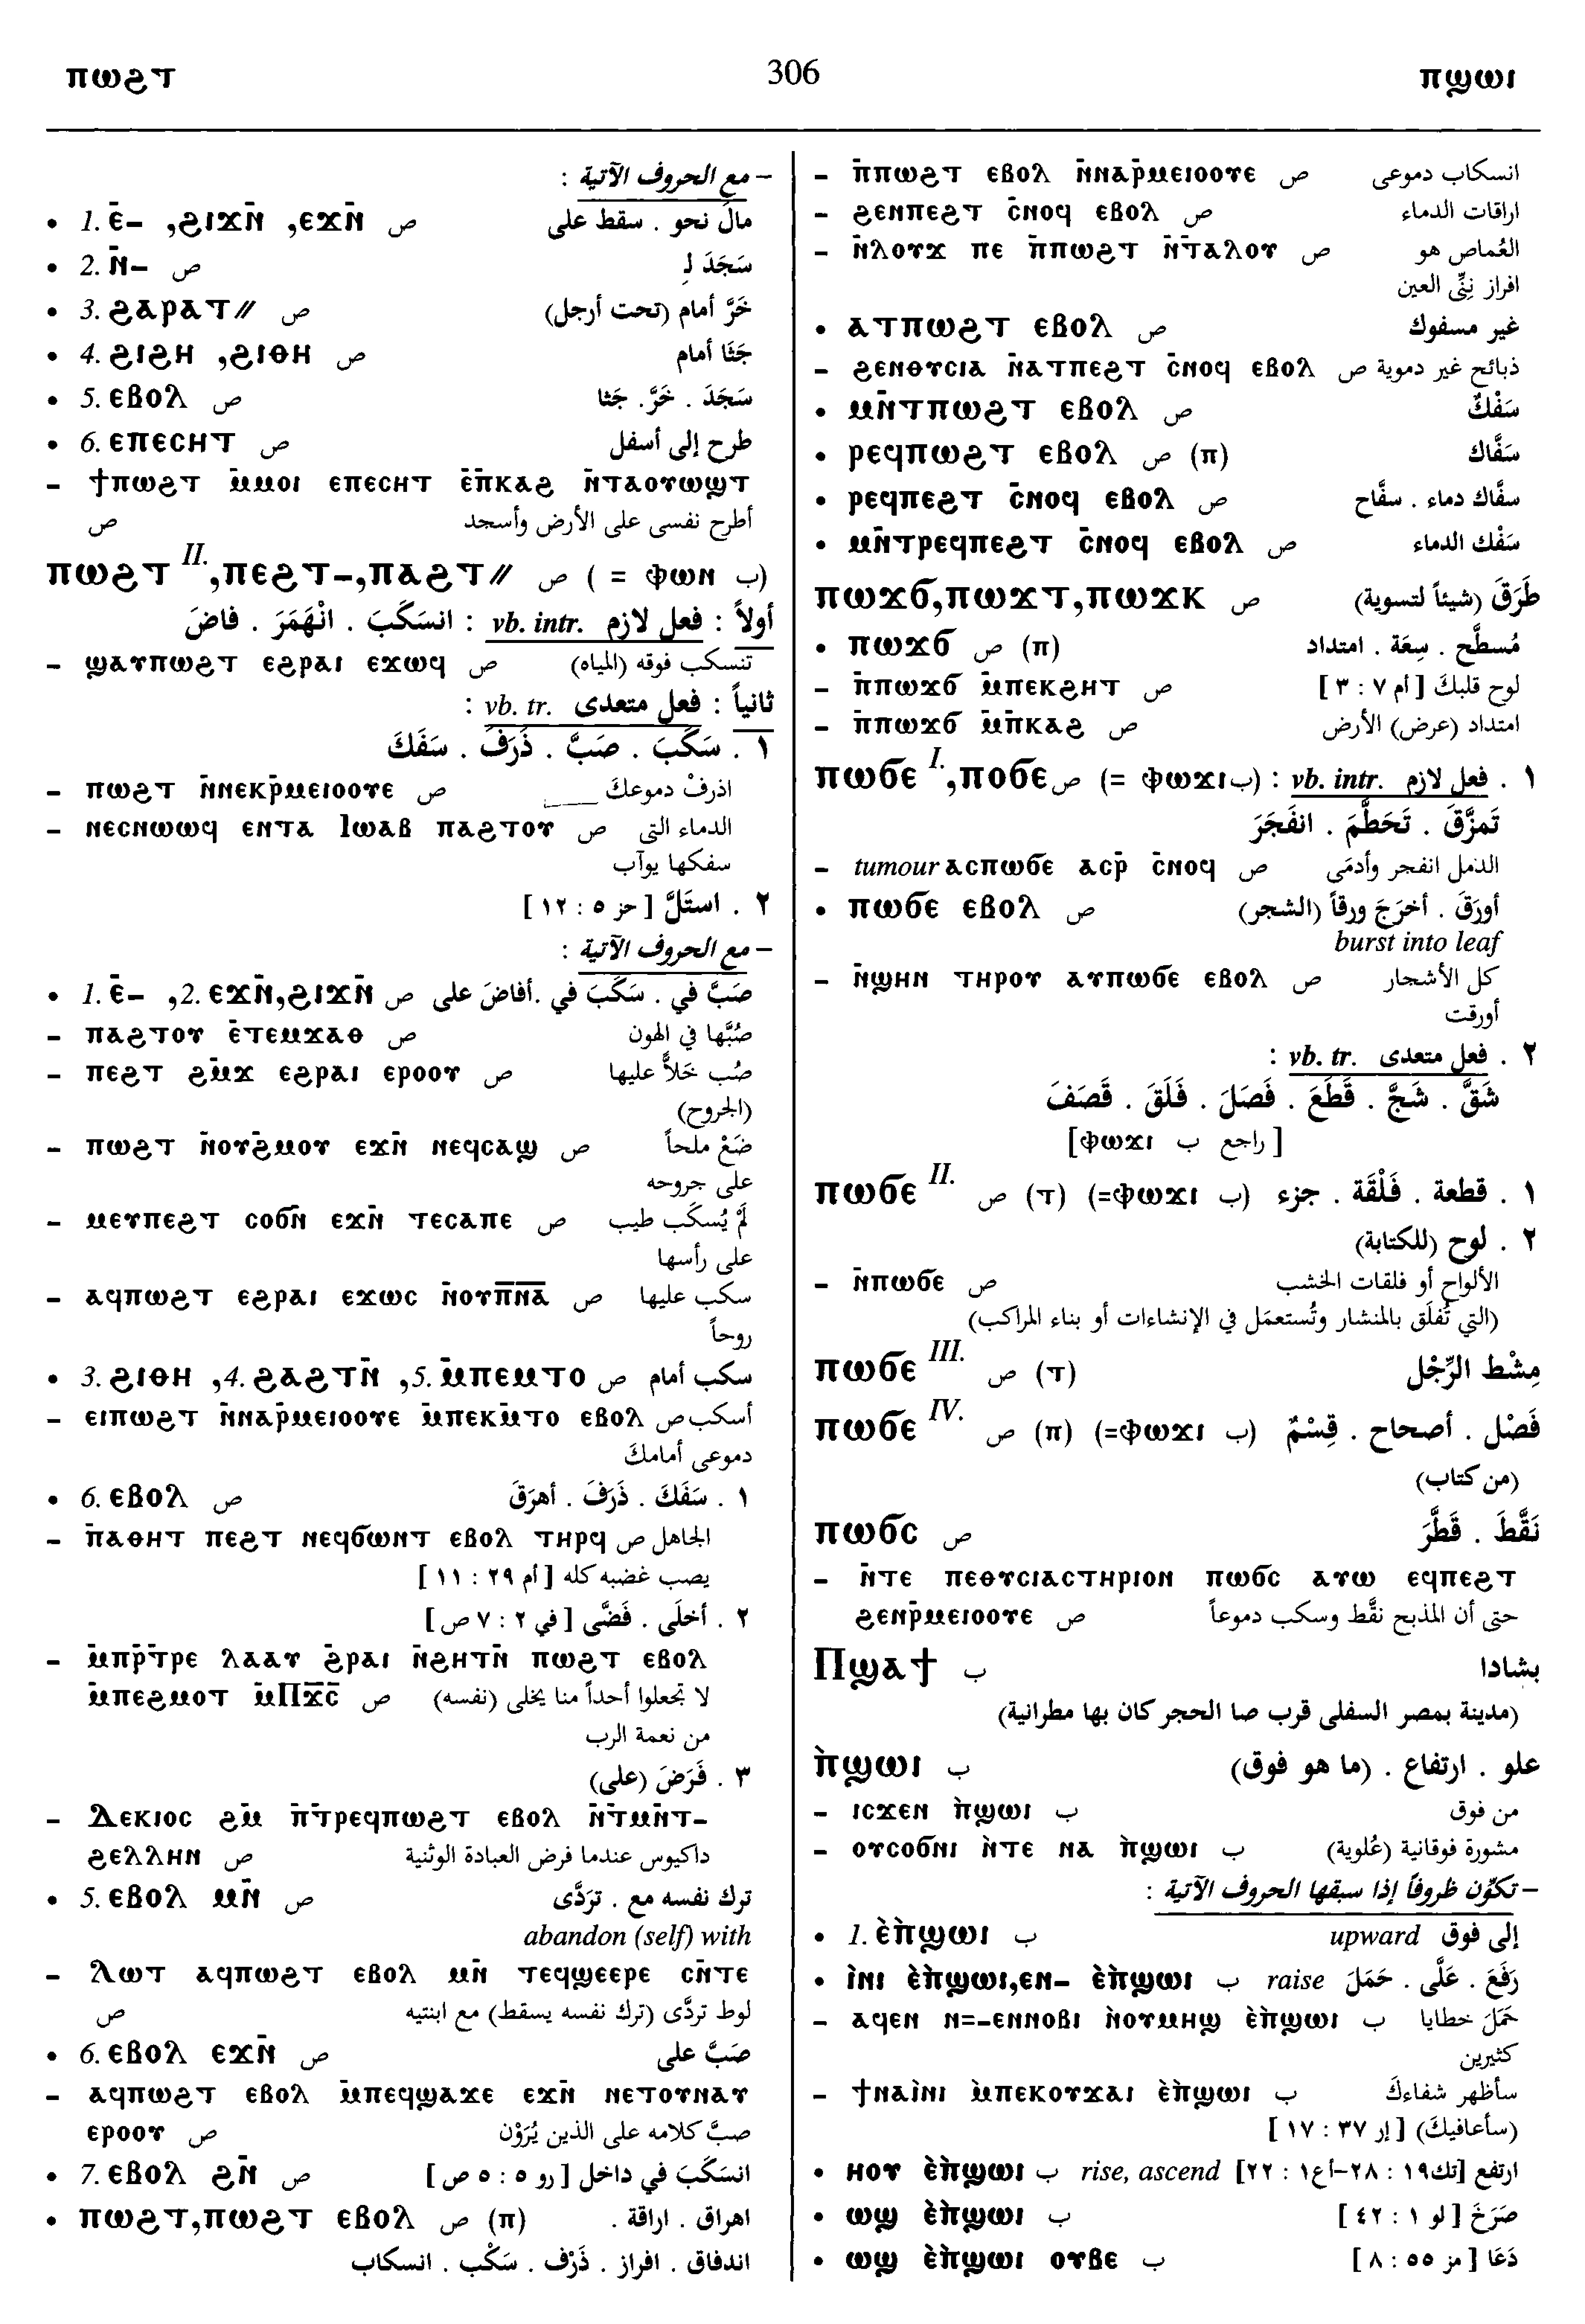 ⲡⲱϩⲧ 306 ⲡϣⲱⲓ
– مع الحروف الآتية :
• 1. ⲉ̄– ,ϩⲓϫⲛ̄ ,ⲉϫⲛ̄ ص مالَ نحو . سقط على
• 2. ⲛ̄– ص سَجَدَ لِـ
• 3. ϩⲁⲣⲁⲧ// ص خَرَّ أمام (تحت أرجل)
• 4. ϩⲓϩⲏ ,ϩⲓⲑⲏ ص جَثَا أمام
• 5. ⲉⲃⲟⲗ ص سَجَدَ . خَرَّ. جَثا
• 6. ⲉⲡⲉⲥⲏⲧ ص طرح إلى أسفل
– ϯⲡⲱϩⲧ ⲙ̄ⲙⲟⲓ ⲉⲡⲉⲥⲏⲧ ⲉ̄ⲡ̄ⲕⲁϩ ⲛ̄ⲧⲁⲟⲩⲱϣⲧ
ص أطرح نفسى على الأرض وأسجد
ⲡⲱϩⲧ II.,ⲡⲉϩⲧ–,ⲡⲁϩⲧ// ص ( = ⲫⲱⲛ ب)
أولاً : فعل لازم vb. intr. : انسَكَبَ . انْهَمَرَ . فاضَ
– ϣⲁⲩⲡⲱϩⲧ ⲉϩⲣⲁⲓ ⲉϫⲱϥ ص تنسكب فوقه (المياه)
ثانياً : فعل متعدى vb. tr. :
١ . سَكَبَ . صَبَّ . ذَرَفَ . سَفَكَ
– ⲡⲱϩⲧ ⲛ̄ⲛⲉⲕⲣ̄ⲙⲉⲓⲟⲟⲩⲉ ص اذرفْ دموعكَ
– ⲛⲉⲥⲛⲱⲱϥ ⲉⲛⲧⲁ Ⲓⲱⲁⲃ ⲡⲁϩⲧⲟⲩ ص الدماء التى
سفكها يوآب
٢ . استَلَّ [ حز ٥ : ١٢ ]
– مع الحروف الآتية :
• 1. ⲉ̄– ,2. ⲉϫⲛ̄,ϩⲓϫⲛ̄ ص صَبَّ في . سَكَبَ في .أفاضَ على
– ⲡⲁϩⲧⲟⲩ ⲉ̄ⲧⲉⲙϫⲁⲑ ص صُبَّها في الهون
– ⲡⲉϩⲧ ϩⲙ̄ϫ ⲉϩⲣⲁⲓ ⲉⲣⲟⲟⲩ ص صُب خَلاًّ عليها
(الجروح)
– ⲡⲱϩⲧ ⲛ̄ⲟⲩϩ̄ⲙⲟⲩ ⲉϫⲛ̄ ⲛⲉϥⲥⲁϣ ص ضَعْ ملحاً
على جروحه
– ⲙⲉⲩⲡⲉϩⲧ ⲥⲟϭⲛ̄ ⲉϫⲛ̄ ⲧⲉⲥⲁⲡⲉ ص لَمْ يُسكَب طيب
على رأسها
– ⲁϥⲡⲱϩⲧ ⲉϩⲣⲁⲓ ⲉϫⲱⲥ ⲛ̄ⲟⲩⲡ̄ⲛ̄ⲁ̄ ص سكب عليها
روحاً
• 3. ϩⲓⲑⲏ ,4. ϩⲁϩⲧⲛ̄ ,5. ⲙ̄ⲡⲉⲙⲧⲟ ص سكب أمام
– ⲉⲓⲡⲱϩⲧ ⲛ̄ⲛⲁⲣ̄ⲙⲉⲓⲟⲟⲩⲉ ⲙ̄ⲡⲉⲕⲙ̄ⲧⲟ ⲉⲃⲟⲗ ص أسكب
دموعى أمامكَ
• 6. ⲉⲃⲟⲗ ص ١ . سَفَكَ . ذَرَفَ . أهرَقَ
– ⲡ̄ⲁⲑⲏⲧ ⲡⲉϩⲧ ⲛⲉϥϭⲱⲛⲧ ⲉⲃⲟⲗ ⲧⲏⲣϥ ص الجاهل
يصب غضبه كله [ أم ٢٩ : ١١ ]
٢ . أخلَى . فَضَّى [ في ٢ : ٧ ص ]
– ⲙ̄ⲡⲣ̄ⲧⲣⲉ ⲗⲁⲁⲩ ϩ̄ⲣⲁⲓ ⲛ̄ϩⲏⲧⲛ̄ ⲡⲱϩⲧ ⲉⲃⲟⲗ
ⲙ̄ⲡⲉϩⲙⲟⲧ ⲙ̄Ⲡⲭ̄ⲥ̄ ص لا تجعلوا أحداً منا يخلى (نفسه)
من نعمة الرب
٣ . فَرَضَ (على)
– Ⲇⲉⲕⲓⲟⲥ ϩⲙ̄ ⲡ̄ⲧ̄ⲣⲉϥⲡⲱϩⲧ ⲉⲃⲟⲗ ⲛ̄ⲧⲙⲛ̄ⲧ–
ϩⲉⲗⲗⲏⲛ ص داكيوس عندما فرض العبادة الوثنية
• 5. ⲉⲃⲟⲗ ⲙⲛ̄ ص ترك نفسه مع . تردَّى
abandon (self) with
– Ⲗⲱⲧ ⲁϥⲡⲱϩⲧ ⲉⲃⲟⲗ ⲙⲛ̄ ⲧⲉϥϣⲉⲉⲣⲉ ⲥⲛ̄ⲧⲉ
ص لوط تردَّى (ترك نفسه يسقط) مع ابنتيه
• 6. ⲉⲃⲟⲗ ⲉϫⲛ̄ ص صَبَّ على
– ⲁϥⲡⲱϩⲧ ⲉⲃⲟⲗ ⲙ̄ⲡⲉϥϣⲁϫⲉ ⲉϫⲛ̄ ⲛⲉⲧⲟⲩⲛⲁⲩ
ⲉⲣⲟⲟⲩ ص صبَّ كلامه على الذين يُرَوْن
• 7. ⲉⲃⲟⲗ ϩⲛ̄ ص انسَكَبَ في داخل [ رو ٥ : ٥ ص ]
• ⲡⲱϩⲧ,ⲡⲱϩⲧ ⲉⲃⲟⲗ ص (ⲡ) اهراق . اراقة .
اندفاق . افراز . ذَرْف . سَكْب . انسكاب
– ⲡ̄ⲡⲱϩⲧ ⲉⲃⲟⲗ ⲛ̄ⲛⲁⲣ̄ⲙⲉⲓⲟⲟⲩⲉ ص انسكاب دموعى
– ϩⲉⲛⲡⲉϩⲧ ⲥ̄ⲛⲟϥ ⲉⲃⲟⲗ ص اراقات الدماء
– ⲛ̄ⲗⲟⲩϫ ⲡⲉ ⲡ̄ⲡⲱϩⲧ ⲛ̄ⲧⲁⲗⲟⲩ ص العُماص هو
افراز نِنِّى العين
• ⲁⲧⲡⲱϩⲧ ⲉⲃⲟⲗ ص غير مسفوك
– ϩⲉⲛⲑⲩⲥⲓⲁ ⲛ̄ⲁⲧⲡⲉϩⲧ ⲥ̄ⲛⲟϥ ⲉⲃⲟⲗ ص ذبائح غير دموية
• ⲙⲛ̄ⲧⲡⲱϩⲧ ⲉⲃⲟⲗ ص سَفْكٌ
• ⲣⲉϥⲡⲱϩⲧ ⲉⲃⲟⲗ ص (ⲡ) سَفَّاك
• ⲣⲉϥⲡⲉϩⲧ ⲥ̄ⲛⲟϥ ⲉⲃⲟⲗ ص سفَّاك دماء . سفَّاح
• ⲙⲛ̄ⲧⲣⲉϥⲡⲉϩⲧ ⲥ̄ⲛⲟϥ ⲉⲃⲟⲗ ص سَفْك الدماء
ⲡⲱϫϭ,ⲡⲱϫⲧ,ⲡⲱϫⲕ ص طَرَقَ (شيئاً لتسوية)
• ⲡⲱϫϭ ص (ⲡ) مُسطَّح . سِعَة . امتداد
– ⲡ̄ⲡⲱϫϭ ⲙ̄ⲡⲉⲕϩⲏⲧ ص لوح قلبكَ [ أم ٧ : ٣ ]
– ⲡ̄ⲡⲱϫϭ ⲙ̄ⲡ̄ⲕⲁϩ ص امتداد (عرض) الأرض
ⲡⲱϭⲉ I.,ⲡⲟϭⲉ ص (= ⲫⲱϫⲓ ب) : vb. intr. فعل لازم . ١
تَمزَّقَ . تَحَطَّمَ . انفَجَرَ
– tumour ⲁⲥⲡⲱϭⲉ ⲁⲥⲣ̄ ⲥ̄ⲛⲟϥ ص الدمل انفجر وأدمَى
• ⲡⲱϭⲉ ⲉⲃⲟⲗ ص أورَقَ . أخرَجَ ورقاً (الشجر)
burst into leaf
– ⲛ̄ϣⲏⲛ ⲧⲏⲣⲟⲩ ⲁⲩⲡⲱϭⲉ ⲉⲃⲟⲗ ص كل الأشجار
أورقت
٢ . فعل متعدى vb. tr. :
شَقَّ . شَجَّ . قَطَعَ . فَصَلَ . فَلَقَ . قَصَفَ
[ راجع ب ⲫⲱϫⲓ]
ⲡⲱϭⲉ II. ص (ⲧ) (=ⲫⲱϫⲓ ب) ١ . قطعة . فَلْقَة . جزء
٢ . لوح (للكتابة)
– ⲛ̄ⲡⲱϭⲉ ص الألواح أو فلقات الخشب
(التي تُفلَق بالمنشار وتُستعمَل في الإنشاءات أو بناء المراكب)
ⲡⲱϭⲉ III. ص (ⲧ) مِشْط الرِّجْل
ⲡⲱϭⲉ IV. ص (ⲡ) (=ⲫⲱϫⲓ ب) فَصْل . أصحاح . قِسْمٌ
(من كتاب)
ⲡⲱϭⲥ ص نَقَّطَ . قَطَّرَ
– ⲛ̄ⲧⲉ ⲡⲉⲑⲩⲥⲓⲁⲥⲧⲏⲣⲓⲟⲛ ⲡⲱϭⲥ ⲁⲩⲱ ⲉϥⲡⲉϩⲧ
ϩⲉⲛⲣ̄ⲙⲉⲓⲟⲟⲩⲉ ص حتى أن المذبح نقَّط وسكب دموعاً
Ⲡϣⲁϯ ب بشادا
(مدينة بمصر السفلى قرب صا الحجر كان بها مطرانية)
ⲡ̀ϣⲱⲓ ب علو . ارتفاع . (ما هو فوق)
– ⲓⲥϫⲉⲛ ⲡ̀ϣⲱⲓ ب من فوق
– ⲟⲩⲥⲟϭⲛⲓ ⲛ̀ⲧⲉ ⲛⲁ ⲡ̀ϣⲱⲓ ب مشورة فوقانية (عُلوية)
– تكوِّن ظروفاً إذا سبقها الحروف الآتية :
• 1. ⲉ̀ⲡ̀ϣⲱⲓ ب إلى فوق upward
• ⲓ̀ⲛⲓ ⲉ̀ⲡ̀ϣⲱⲓ,ⲉⲛ– ⲉ̀ⲡ̀ϣⲱⲓ ب raise رَفَعَ . عَلَّى . حَمَلَ
– ⲁϥⲉⲛ ⲛ=–ⲉⲛⲛⲟⲃⲓ ⲛ̀ⲟⲩⲙⲏϣ ⲉ̀ⲡ̀ϣⲱⲓ ب حَمَلَ خطايا
كثيرين
– ϯⲛⲁⲓ̀ⲛⲓ ⲙ̀ⲡⲉⲕⲟⲩϫⲁⲓ ⲉ̀ⲡ̀ϣⲱⲓ ب سأظهر شفاءكَ
(سأعافيكَ) [ إر ٣٧ : ١٧ ]
• ⲏⲟⲩ ⲉ̀ⲡ̀ϣⲱⲓ ب rise, ascend ارتفع [تك١٩ : ٢٨–أع١ : ٢٢]
• ⲱϣ ⲉ̀ⲡ̀ϣⲱⲓ ب صَرَخَ [ لو ١ : ٤٢ ]
• ⲱϣ ⲉ̀ⲡ̀ϣⲱⲓ ⲟⲩⲃⲉ ب دَعَا [ مز ٥٥ : ٨ ]